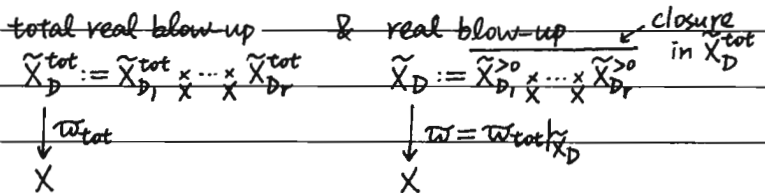 total real blow-up & real blow-up closure
in X̃_D^tot
X̃_D^tot := X̃_{D_1}^tot ×_X ⋯ ×_X X̃_{D_r}^tot X̃_D := X̃_{D_1}^{>0} ×_X ⋯ ×_X X̃_{D_r}^{>0}
↓ ϖ_tot ↓ ϖ = ϖ_tot|_{X̃_D}
X X